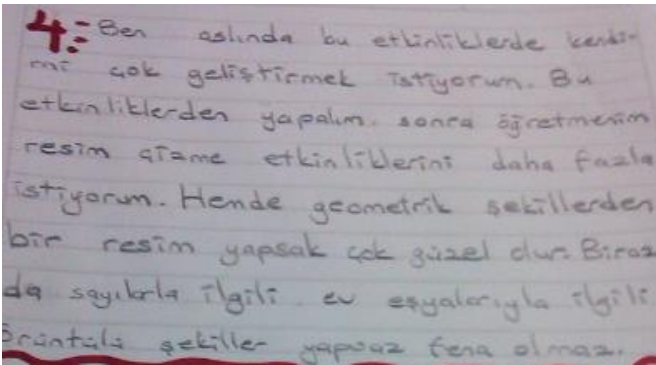 4:- Ben aslında bu etkinliklerde kendi-
mi çok geliştirmek istiyorum. Bu
etkinliklerden yapalım. sonra öğretmenim
resim çizme etkinliklerini daha fazla
istiyorum. Hemde geometrik şekillerden
bir resim yapsak çok güzel olur. Biraz
da sayılarla ilgili ev eşyalarıyla ilgili
örüntülü şekiller yapsak fena olmaz.